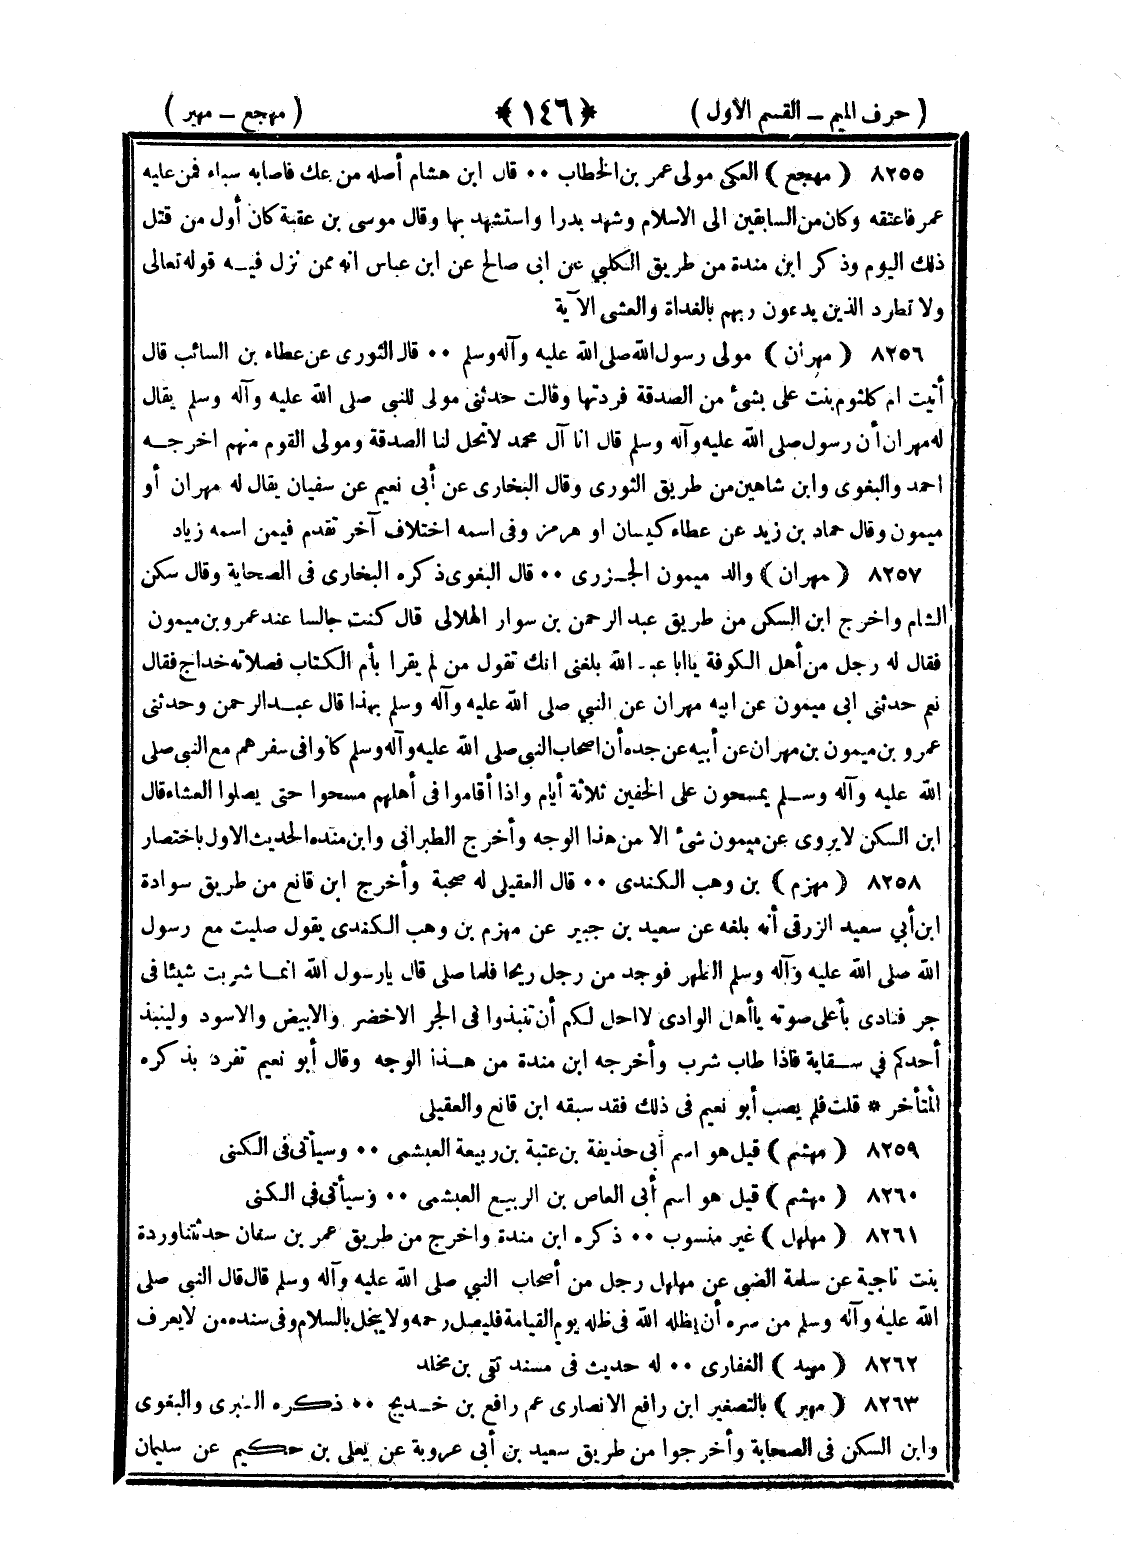 ( حرف الميم ــ القسم الأول ) ﴿١٤٦﴾ ( مهجع ــ مهير )
٨٢٥٥ ( مهجع ) العكى مولى عمر بن الخطاب ٠٠ قال ابن هشام أصله من عك فاصابه سباء فمن عليه
عمر فاعتقه وكان من السابقين الى الاسلام وشهد بدرا واستشهد بها وقال موسى بن عقبة كان أول من قتل
ذلك اليوم وذكر ابن مندة من طريق الكلبي عن ابى صالح عن ابن عباس انه ممن نزل فيه قوله تعالى
ولا تطرد الذين يدعون ربهم بالغداة والعشى الآية
٨٢٥٦ ( مهران ) مولى رسول الله صلى الله عليه وآله وسلم ٠٠ قال الثورى عن عطاء بن السائب قال
أتيت ام كلثوم بنت على بشئ من الصدقة فردتها وقالت حدثنى مولى للنبي صلى الله عليه وآله وسلم يقال
له مهران أن رسول صلى الله عليه وآله وسلم قال انا آل محمد لاتحل لنا الصدقة ومولى القوم منهم اخرجه
احمد والبغوى وابن شاهين من طريق الثورى وقال البخارى عن أبى نعيم عن سفيان يقال له مهران أو
ميمون وقال حماد بن زيد عن عطاء كيسان او هرمز وفى اسمه اختلاف آخر تقدم فيمن اسمه زياد
٨٢٥٧ ( مهران ) والد ميمون الجزرى ٠٠ قال البغوى ذكره البخارى فى الصحابة وقال سكن
الشام واخرج ابن السكن من طريق عبد الرحمن بن سوار الهلالى قال كنت جالسا عند عمرو بن ميمون
فقال له رجل من أهل الكوفة ياابا عبد الله بلغنى انك تقول من لم يقرا بأم الكتاب فصلاته خداج فقال
نعم حدثنى ابى ميمون عن ابيه مهران عن النبي صلى الله عليه وآله وسلم بهذا قال عبد الرحمن وحدثنى
عمرو بن ميمون بن مهران عن أبيه عن جده أن اصحاب النبي صلى الله عليه وآله وسلم كانوا فى سفرهم مع النبي صلى
الله عليه وآله وسلم يمسحون على الخفين ثلاثة أيام واذا أقاموا فى أهلهم مسحوا حتى يصلوا العشاء قال
ابن السكن لا يروى عن ميمون شئ الا من هذا الوجه وأخرج الطبرانى وابن منده الحديث الاول باختصار
٨٢٥٨ ( مهزم ) بن وهب الكندى ٠٠ قال العقيلى له صحبة وأخرج ابن قانع من طريق سوادة
ابن أبي سعيد الزرقى أنه بلغه عن سعيد بن جبير عن مهزم بن وهب الكندى يقول صليت مع رسول
الله صلى الله عليه وآله وسلم الظهر فوجد من رجل ريحا فلما صلى قال يارسول الله انما شربت شيئا فى
جر فنادى بأعلى صوته ياأهل الوادى لا احل لكم أن تنبذوا فى الجر الاخضر والابيض والاسود ولينبذ
أحدكم في سقاية فاذا طاب شرب وأخرجه ابن مندة من هذا الوجه وقال أبو نعيم تفرد بذكره
المتأخر * قلت فلم يصب أبو نعيم فى ذلك فقد سبقه ابن قانع والعقيلى
٨٢٥٩ ( مهشم ) قيل هو اسم أبى حذيفة بن عتبة بن ربيعة العبشمى ٠٠ وسيأتى فى الكنى
٨٢٦٠ ( مهشم ) قيل هو اسم أبى العاص بن الربيع العبشمى ٠٠ وسيأتى فى الكنى
٨٢٦١ ( مهلهل ) غير منسوب ٠٠ ذكره ابن مندة واخرج من طريق عمر بن سفان حدثتنا وردة
بنت ناجية عن سلمة الضبى عن مهلهل رجل من أصحاب النبي صلى الله عليه وآله وسلم قال قال النبي صلى
الله عليه وآله وسلم من سره أن يظله الله فى ظله يوم القيامة فليصل رحمه ولا يبخل بالسلام وفى سنده من لا يعرف
٨٢٦٢ ( مهيد ) الغفارى ٠٠ له حديث فى مسند تقى بن مخلد
٨٢٦٣ ( مهير ) بالتصغير ابن رافع الانصارى عم رافع بن خديج ٠٠ ذكره والبغوى
وابن السكن فى الصحابة وأخرجوا من طريق سعيد بن أبى عروبة عن يعلى بن حكيم عن سليمان